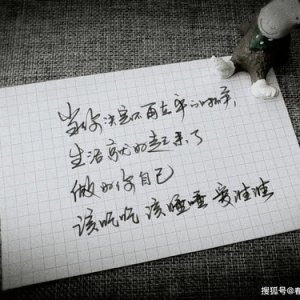 当你决定不再在乎的时候,
生活就好起来了
做好你自己
该吃吃 该睡睡 爱谁谁
搜狐号@春